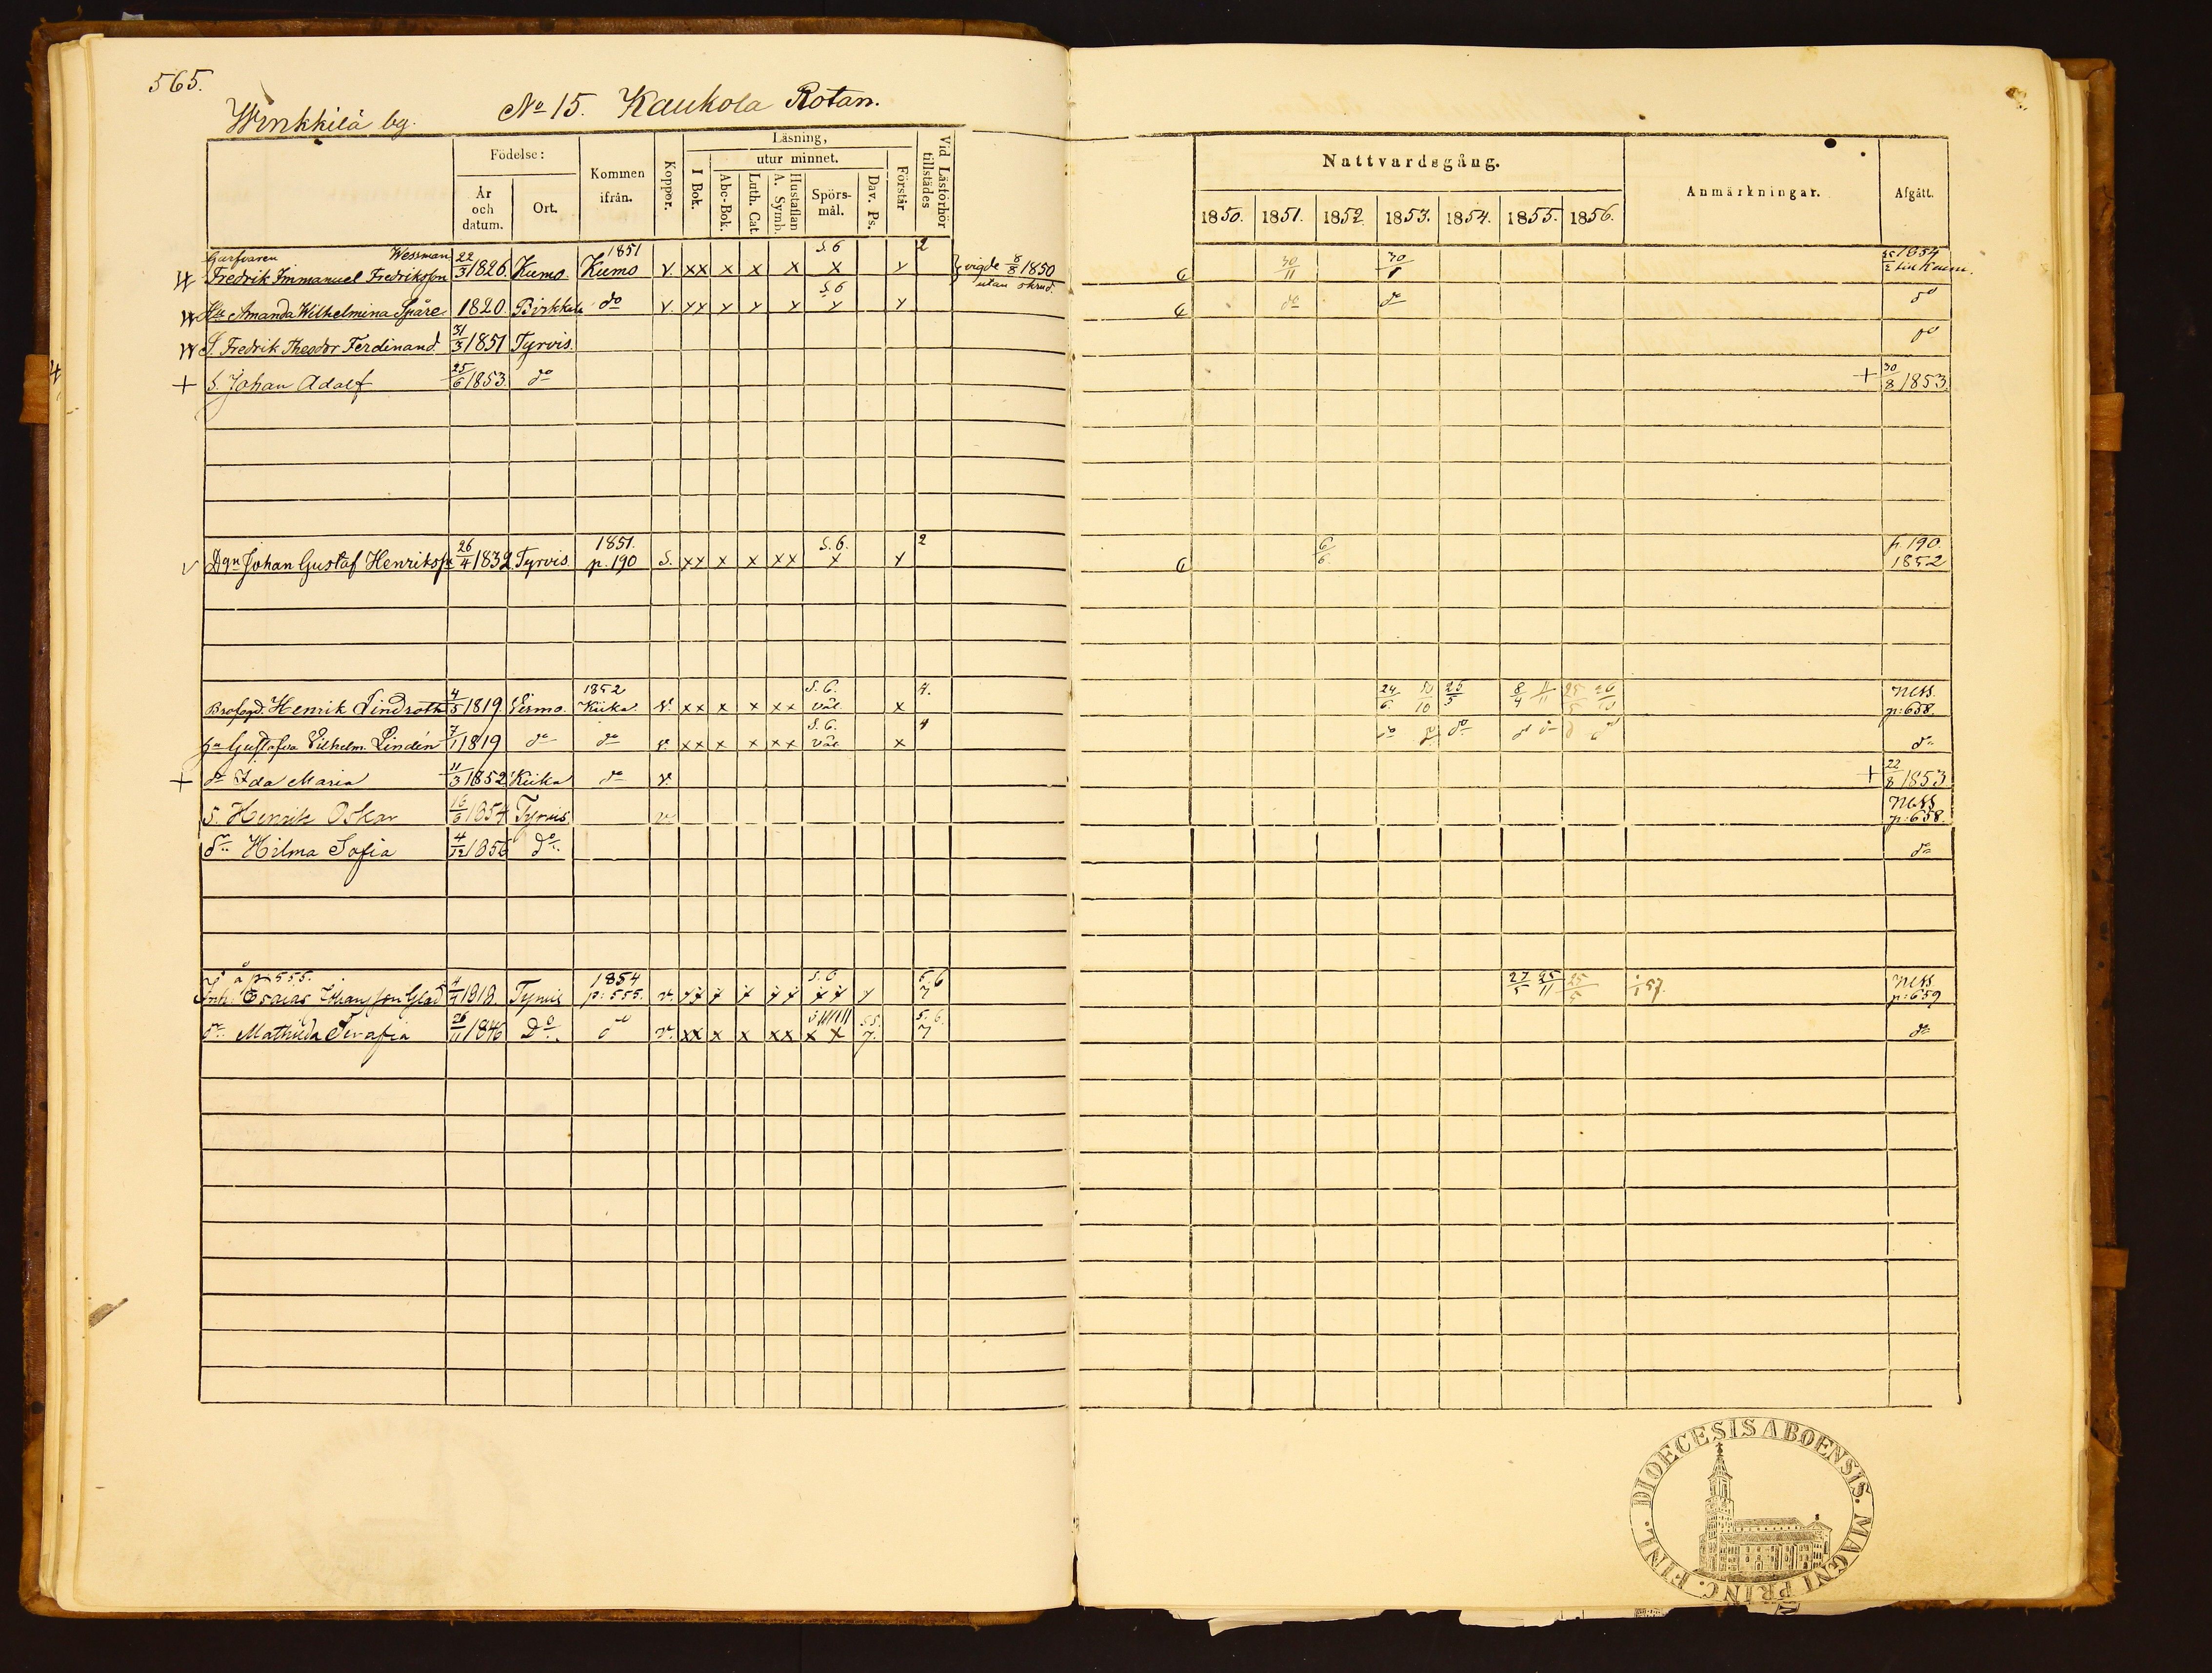 565.
Winkkilä by. No 15. Kaukola Rotan.
Födelse: År och datum. Ort.
Kommen ifrån.
Koppor.
Läsning,
I Bok.
utur minnet.
Abc-Bok. Luth. Cat. Hustaflan A. Symb. Spörsmål. Dav. Ps.
Förstår
Vid Läsförhör tillstädes
Nattvardsgång.
1850. 1851. 1852. 1853. 1854. 1855. 1856.
Anmärkningar.
Afgått.
Garfvaren Wessman 1851 S. 6 2
Fredrik Immanuel Fredriksson 22/3 1826. Kumo. Kumo v. xx x x x x y vigde 8/8 1850 utan skrud. 30/11 30/ 1854 till Kumo.
Amanda Wilhelmina Spåre 1820. Birkkala do v. xx x x x S. 6 y y do do do
S. Fredrik Theodor Ferdinand 31/3 1851 Tyrvis. do
+ S. Johan Adolf 25/6 1853. do + 30/8 1853.
1851. S. 6. 2
v Dgn Johan Gustaf Henriksson 26/4 1832 Tyrvis. p. 190 S. xx x x xx x y 6/6 p. 190 1852
1852 S. 6. 4.
Henrik Lindroth 4/5 1819 Kiika v. xx x x xx väl x 24/6 10 25/5 8/4 11 25/5 26/10 ness. p: 658.
Gustafva Vilhelm. Lindén 7/1 1819 do do v. xx x x xx S. 6. väl x 4 do do do do do do do
+ dr Ida Maria 11/3 1852 Kiika do v. + 22/8 1853
S. Henrik Oskar 16/6 1854 Tyrvis v ness p: 658.
dr Hilma Sofia 4/12 1856 do do
å p 555. 1854 S. 6 5. 6
Inh: Esaias Johansson Glad 4/4 1818. Tyrvis p: 555. v. 7 27/5 25/11 25/5 1/1 57. ness p: 659
dr Mathilda Serafia 26/11 1846 Do do v. xx x x xx x x 7. 5. 6. 7 do
FINL. DIOECESIS ABOENSIS. MAGNI PRINC.